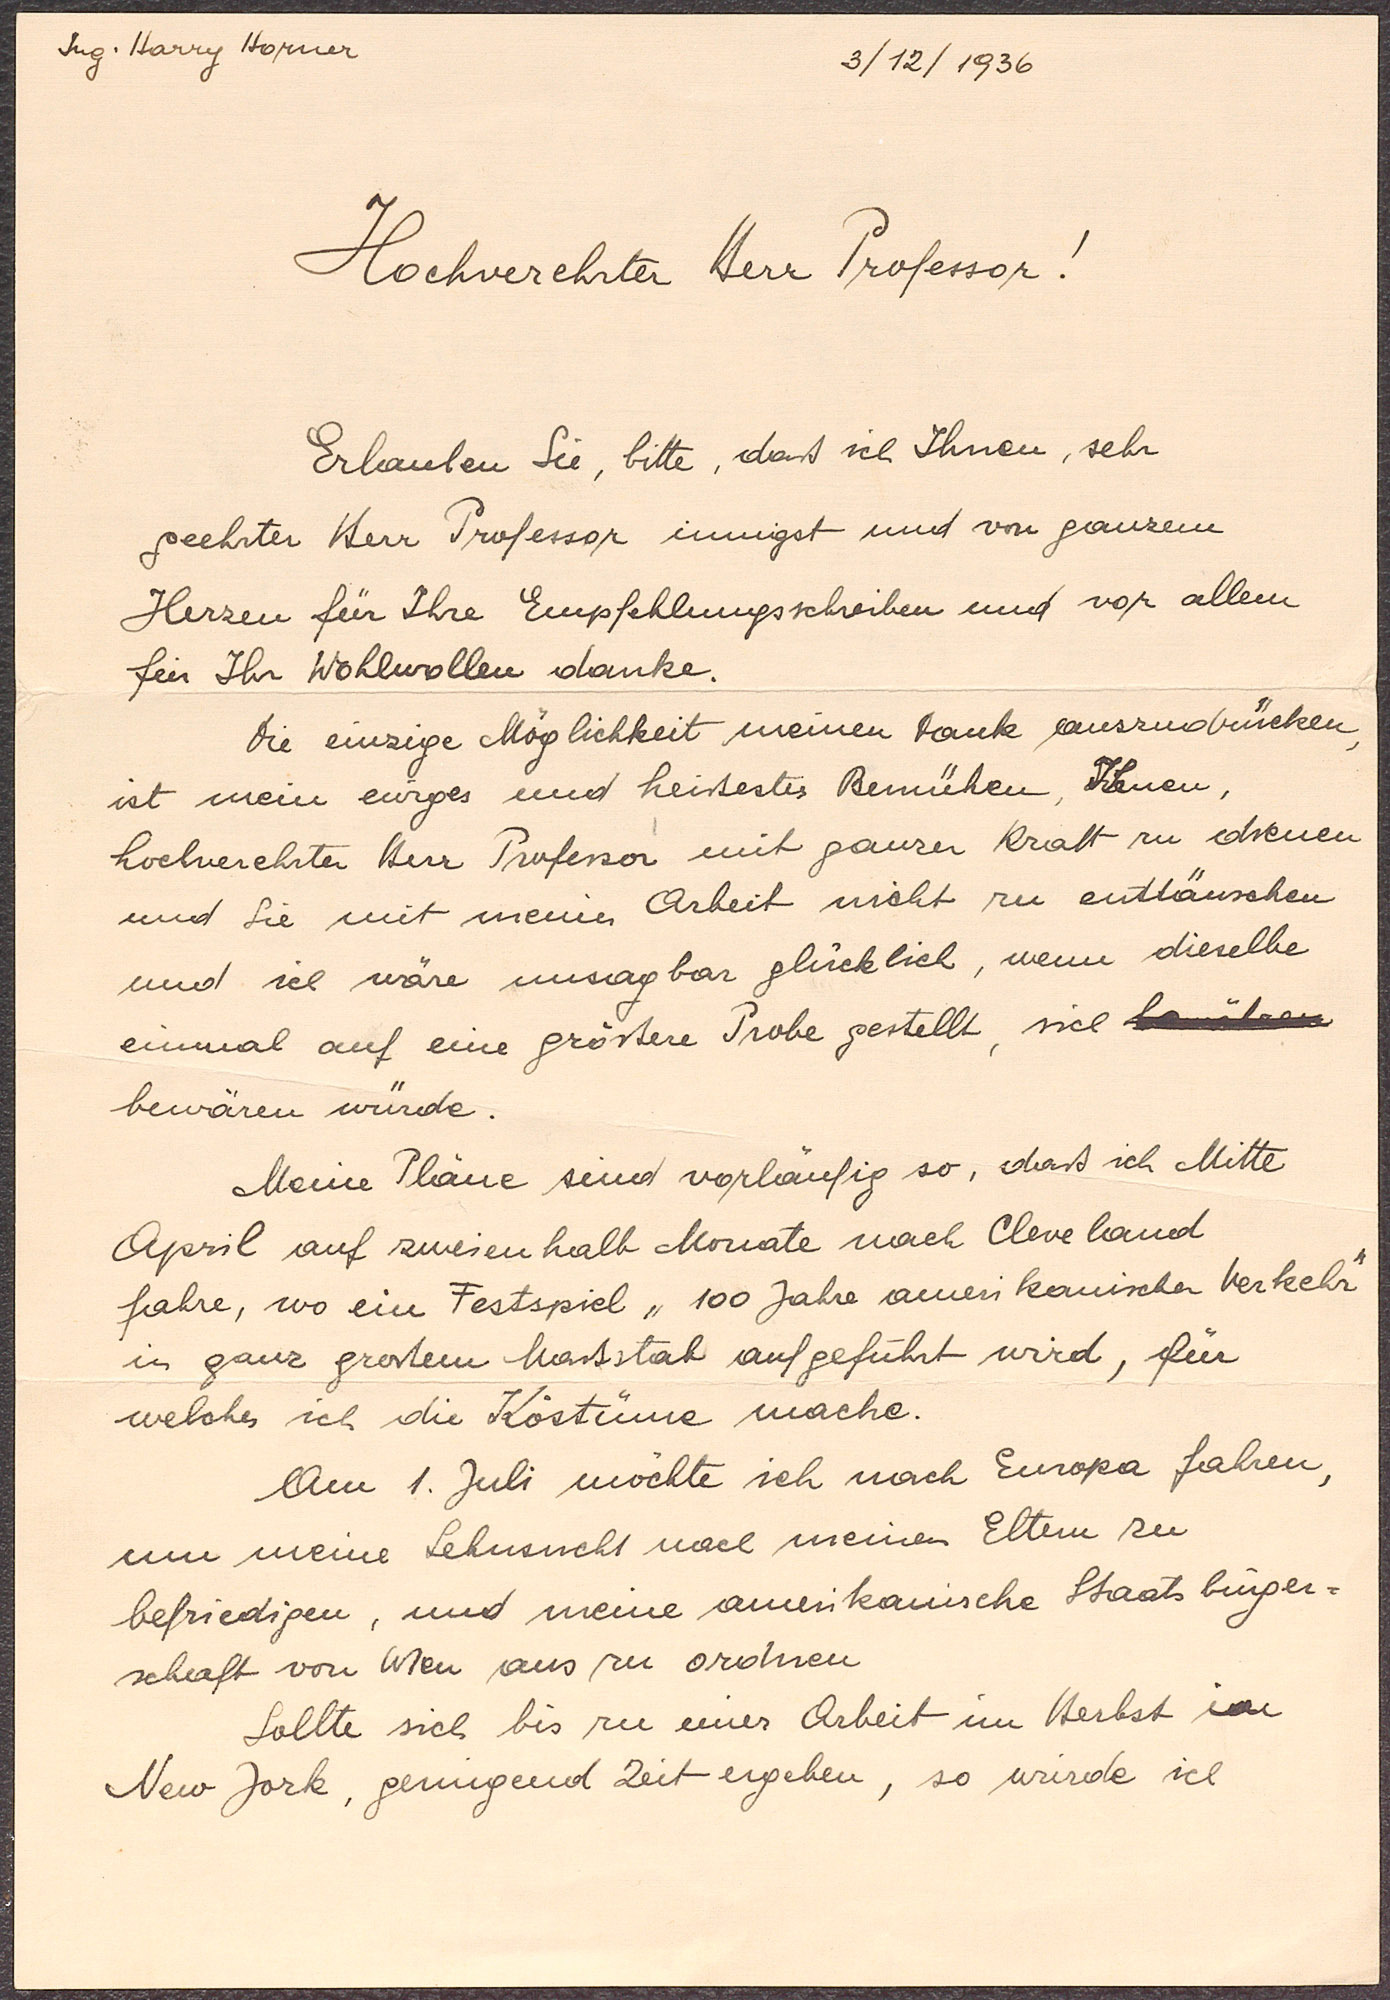 Ing. Harry Horner
3/12/1936
Hochverehrter Herr Professor!
Erlauben Sie, bitte, daß ich Ihnen, sehr
geehrter Herr Professor innigst und von ganzem
Herzen für Ihre Empfehlungsschreiben und vor allem
für Ihr Wohlwollen danke.
Die einzige Möglichkeit meinen Dank auszudrücken,
ist mein ewiges und heißestes Bemühen, Ihnen,
hochverehrter Herr Professor mit ganzer Kraft zu dienen
und Sie mit meiner Arbeit nicht zu enttäuschen
und ich wäre unsagbar glücklich, wenn dieselbe
einmal auf eine größere Probe gestellt, sich
bewären würde.
Meine Pläne sind vorläufig so, daß ich Mitte
April auf zweienhalb Monate nach Cleveland
fahre, wo ein Festspiel „100 Jahre amerikanischer Verkehr"
in ganz großem Maßstab aufgeführt wird, für
welches ich die Köstüme mache.
Am 1. Juli möchte ich nach Europa fahren,
um meine Sehnsucht nach meinen Eltern zu
befriedigen, und meine amerikanische Staatsbürger=
schaft von Wien aus zu ordnen
Sollte sich bis zu einer Arbeit im Herbst in
New Jork, genügend Zeit ergeben, so würde ich